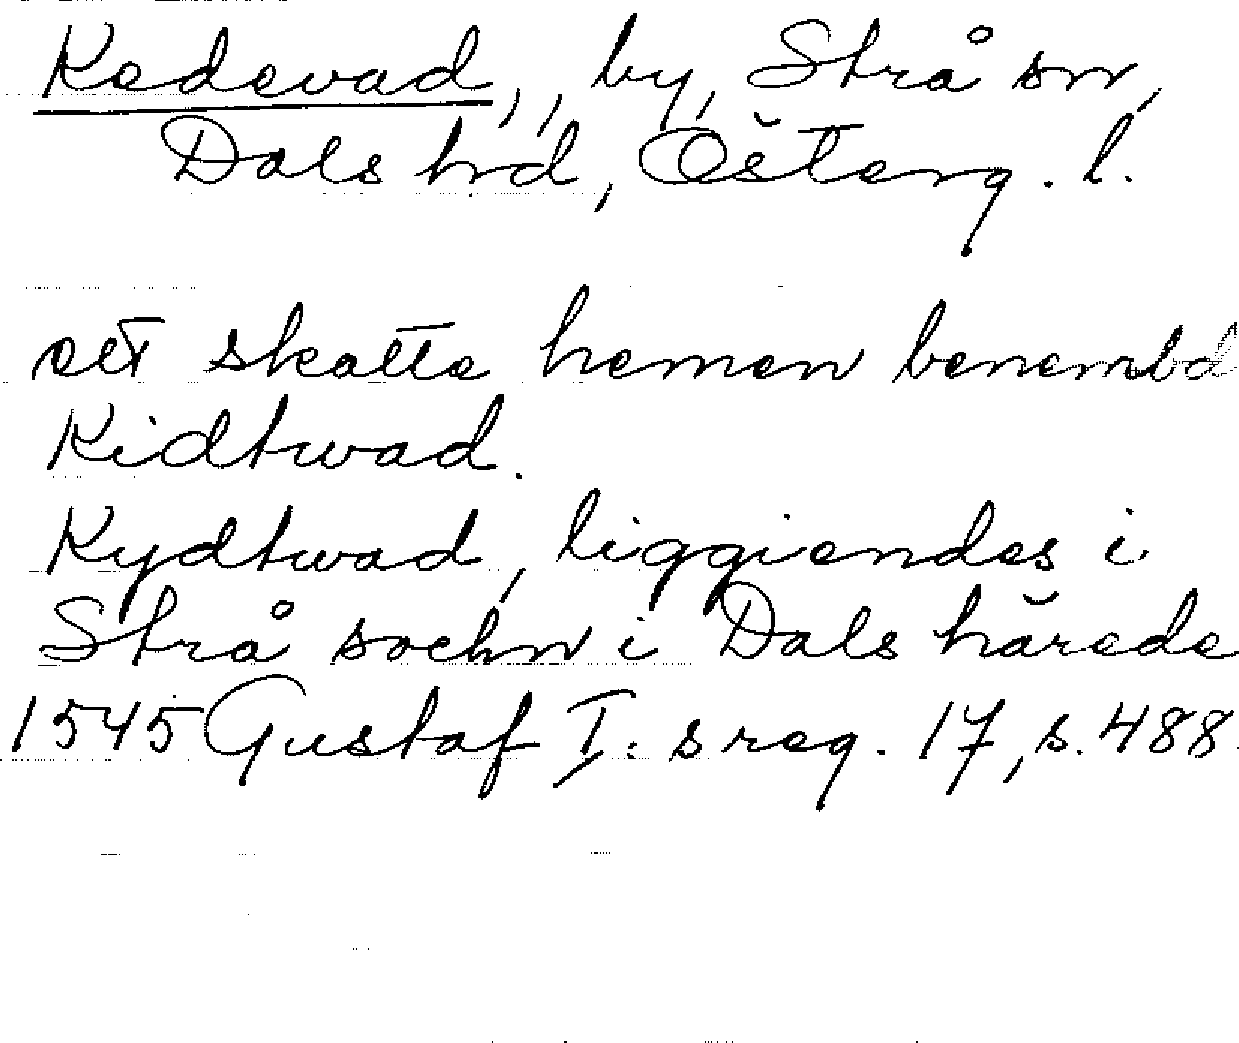 Kedevad,, by, Strå sn,
Dals hd, Österg. l.
ett skatte hemen benembd
Kidtwad.
Kydtwad, liggiendes i
Strå sochn i Dals härede
1545 Gustaf I:s reg. 17, s. 488.